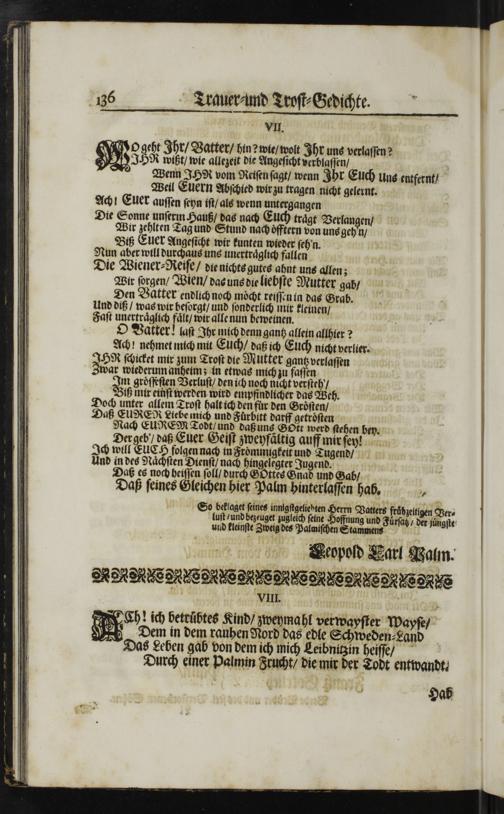 136 Trauer-und Trost-Gedichte.
VII.
WO geht Ihr/ Vatter/ hin? wie/ wolt Ihr uns verlassen?
IHR wißt/ wie allezeit die Angesicht verblassen/
Wenn IHR vom Reisen sagt/ wenn Ihr Euch uns entfernt/
Weil Euern Abschied wir zu tragen nicht gelernt.
Ach! Euer aussen seyn ist/ als wenn untergangen
Die Sonne unserm Hauß/ das nach Euch trägt Verlangen/
Wir zehlten Tag und Stund nach öfftern von uns geh'n/
Biß Euer Angesicht wir kunten wieder seh'n.
Nun aber will durchaus uns unerträglich fallen
Die Wiener-Reise/ die nichts gutes ahnt uns allen;
Wir sorgen/ Wien/ das uns die liebste Mutter gab/
Den Vatter endlich noch möcht reissen in das Grab.
Und diß/ was wir besorgt/ und sonderlich mir kleinen/
Fast unerträglich fält/ wir alle nun beweinen.
O Vatter! last Ihr mich denn gantz allein allhier?
Ach! nehmet mich mit Euch/ daß ich Euch nicht verlier.
IHR schicket mir zum Trost die Mutter gantz verlassen
Zwar wiederum anheim; in etwas mich zu fassen
Im grössesten Verlust/ den ich noch nicht versteh'/
Biß mir einst werden wird empfindlicher das Weh.
Doch unter allem Trost halt ich den für den Grösten/
Daß EURER Liebe mich und Fürbitt darff getrösten
Nach EUREM Todt/ und daß uns GOtt werd stehen bey.
Der geb'/ daß Euer Geist zweyfältig auff mir sey!
Ich will EUCH folgen nach in Frömmigkeit und Tugend/
Und in des Nächsten Dienst/ nach hingelegter Jugend.
Daß es noch heissen soll/ durch GOttes Gnad und Gab/
Daß seines Gleichen hier Palm hinterlassen hab.
So beklaget seines innigstgeliebten Herrn Vatters frühzeitigen Ver-
lust/ und bezeuget zugleich seine Hoffnung und Fürsatz/ der jüngste
und kleinste Zweig des Palmischen Stammens
Leopold Carl Palm.
VIII.
ACh! ich betrübtes Kind/ zweymahl verwayster Wayse/
Dem in dem rauhen Nord das edle Schweden-Land
Das Leben gab von dem ich mich Leibnitzin heisse/
Durch einer Palmin Frucht/ die mir der Todt entwandt.
Hab